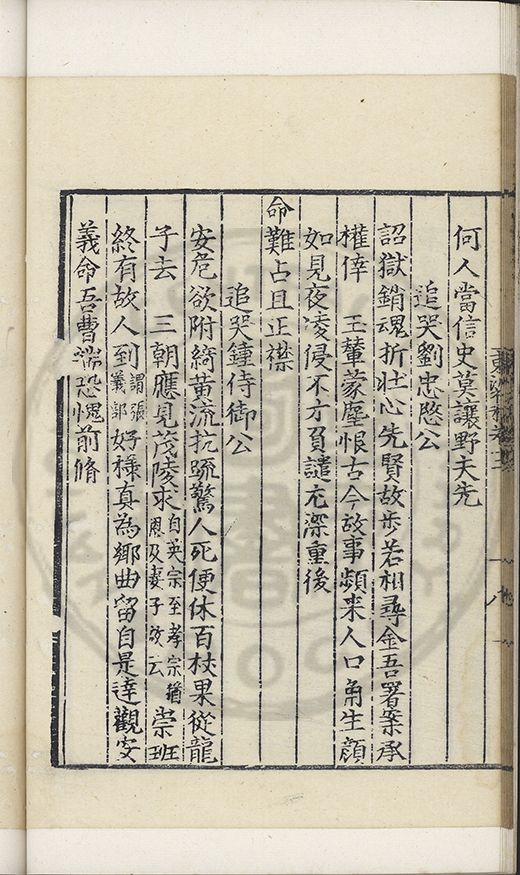 何人當信史莫讓野夫先
追哭劉忠愍公
詔獄銷魂折壮心先賢故步若相尋金吾署案承
權倖　王輦蒙塵恨古今故事頻来人口角生顔
如見夜凌侵不才負譴尤深重後
命難占且正襟
追哭鐘侍御公
安危欲附綺黄流抗疏驚人死便休百杖果從龍
子去　三朝應見茂陵求自英宗至孝宗猶恩及妻子故云崇班
終有故人到謂張義部好様真為鄉曲留自是達觀安
義命吾曹端恐愧前脩
八